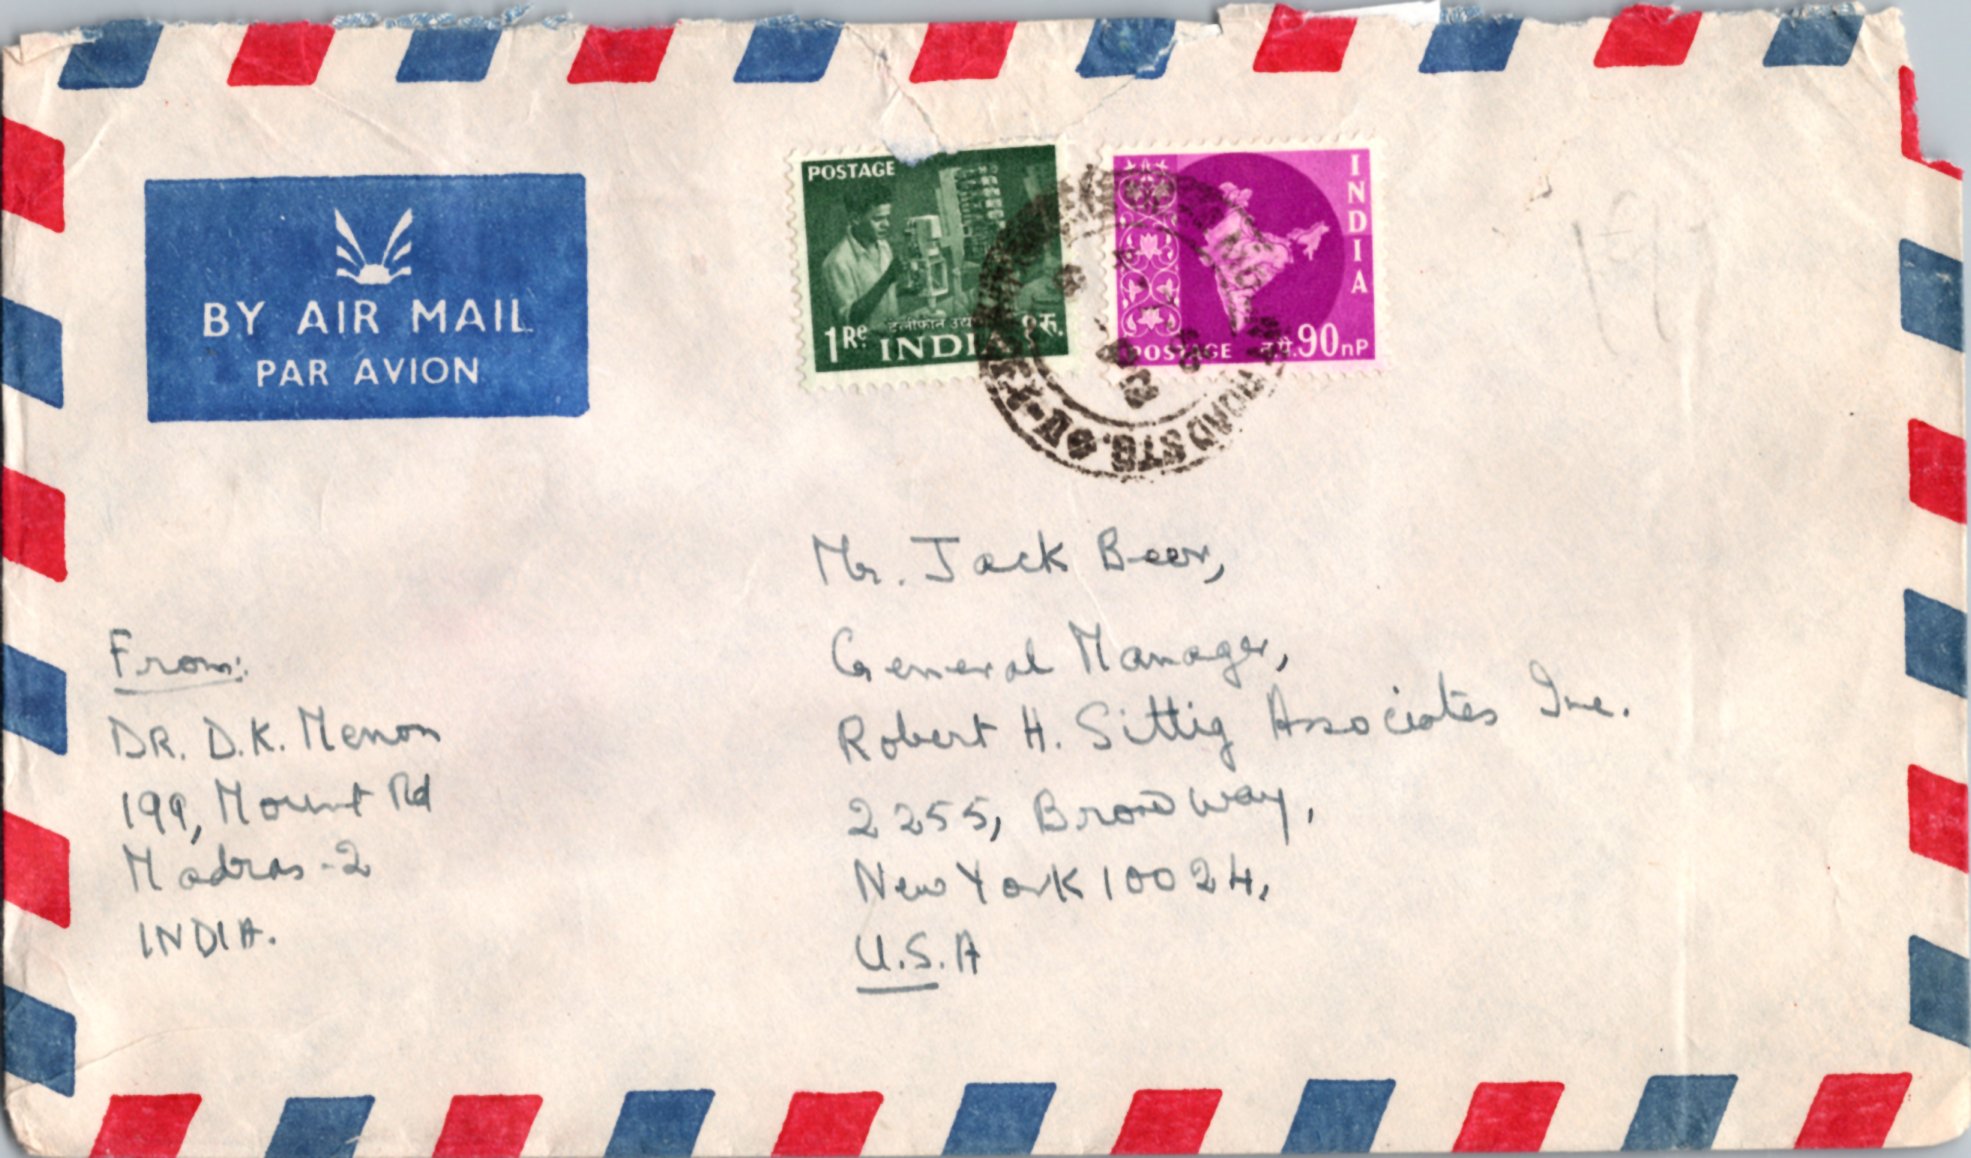 BY AIR MAIL
PAR AVION
POSTAGE
1 Re
१ रु.
INDIA
INDIA
POSTAGE
न.पै. 90 nP
Mr. Jack Beer,
General Manager,
Robert H. Sittig Associates Inc.
2255, Broadway,
New York 10024,
U.S.A
From:
DR. D.K. Menon
199, Mount Rd
Madras-2
INDIA.